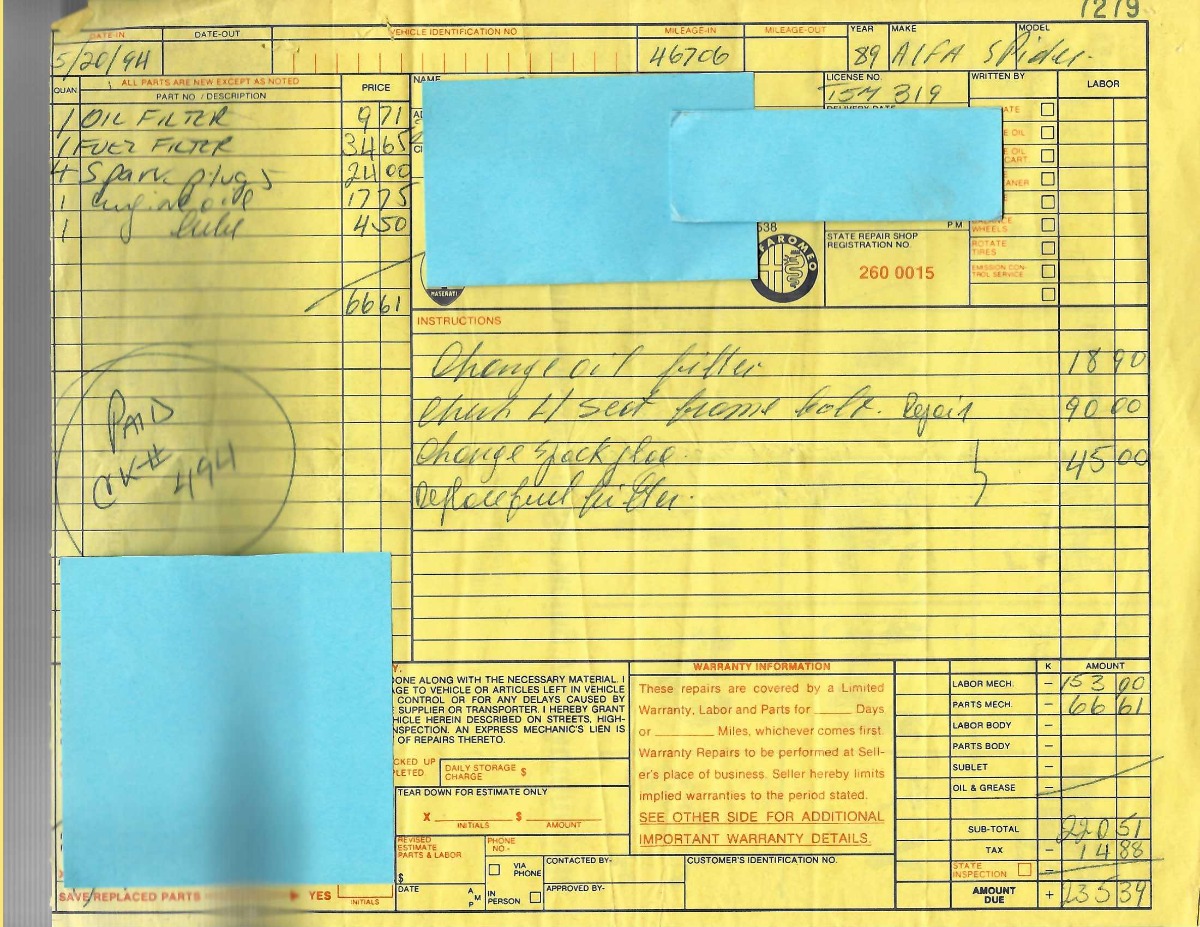 7279
DATE-IN DATE-OUT VEHICLE IDENTIFICATION NO MILEAGE-IN MILEAGE-OUT YEAR MAKE MODEL
5/20/94 46706 89 AlFA SPider.
QUAN. ALL PARTS ARE NEW EXCEPT AS NOTED
PART NO. / DESCRIPTION PRICE
NAME LICENSE NO. WRITTEN BY LABOR
T5M 319
1 OIL FILTER 9 71
1 FUEL FILTER 34 65
4 Spark plugs 24 00
1 engine oil 17 75
1 lube 4 50
66 61
OIL
OIL
CART
WHEELS
ROTATE TIRES
EMISSION CON-
TROL SERVICE
PM
STATE REPAIR SHOP
REGISTRATION NO.
260 0015
538
MASERATI
INSTRUCTIONS
Change oil filter 18 90
Check L/ Seat frame bolt. Repair 90 00
Change spack plog. 45 00
Replace fuel filter.
PAID
CK# 494
DONE ALONG WITH THE NECESSARY MATERIAL. I
AGE TO VEHICLE OR ARTICLES LEFT IN VEHICLE
CONTROL OR FOR ANY DELAYS CAUSED BY
SUPPLIER OR TRANSPORTER. I HEREBY GRANT
HICLE HEREIN DESCRIBED ON STREETS, HIGH-
NSPECTION. AN EXPRESS MECHANIC'S LIEN IS
OF REPAIRS THERETO.
CKED UP
LETED
DAILY STORAGE
CHARGE $
TEAR DOWN FOR ESTIMATE ONLY
X $
INITIALS AMOUNT
REVISED
ESTIMATE
PARTS & LABOR
$
PHONE
NO.-
VIA
PHONE
IN
PERSON
CONTACTED BY-
APPROVED BY-
DATE A M P
SAVE REPLACED PARTS YES INITIALS
WARRANTY INFORMATION
These repairs are covered by a Limited
Warranty, Labor and Parts for ______ Days
or ________ Miles, whichever comes first.
Warranty Repairs to be performed at Sell-
er's place of business. Seller hereby limits
implied warranties to the period stated.
SEE OTHER SIDE FOR ADDITIONAL
IMPORTANT WARRANTY DETAILS.
CUSTOMER'S IDENTIFICATION NO.
K AMOUNT
LABOR MECH. – 153 90
PARTS MECH. – 66 61
LABOR BODY –
PARTS BODY –
SUBLET –
OIL & GREASE –
SUB-TOTAL 220 51
TAX – 14 88
STATE INSPECTION –
AMOUNT DUE + 235 39